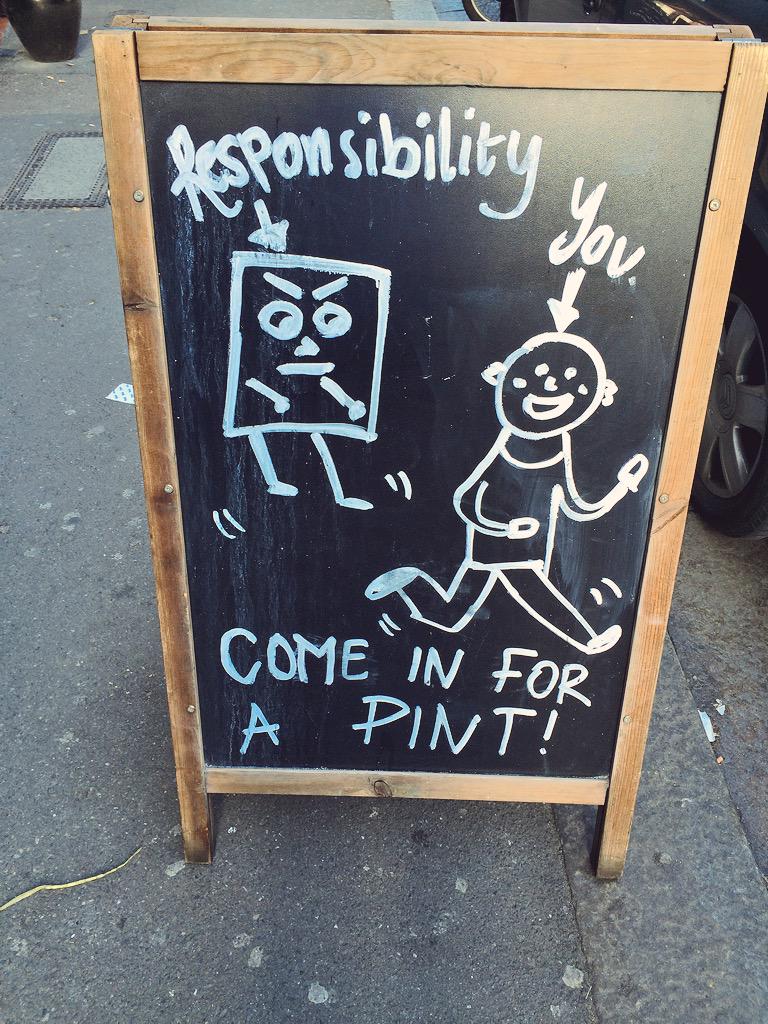 Responsibility
You
COME IN FOR
A PINT!